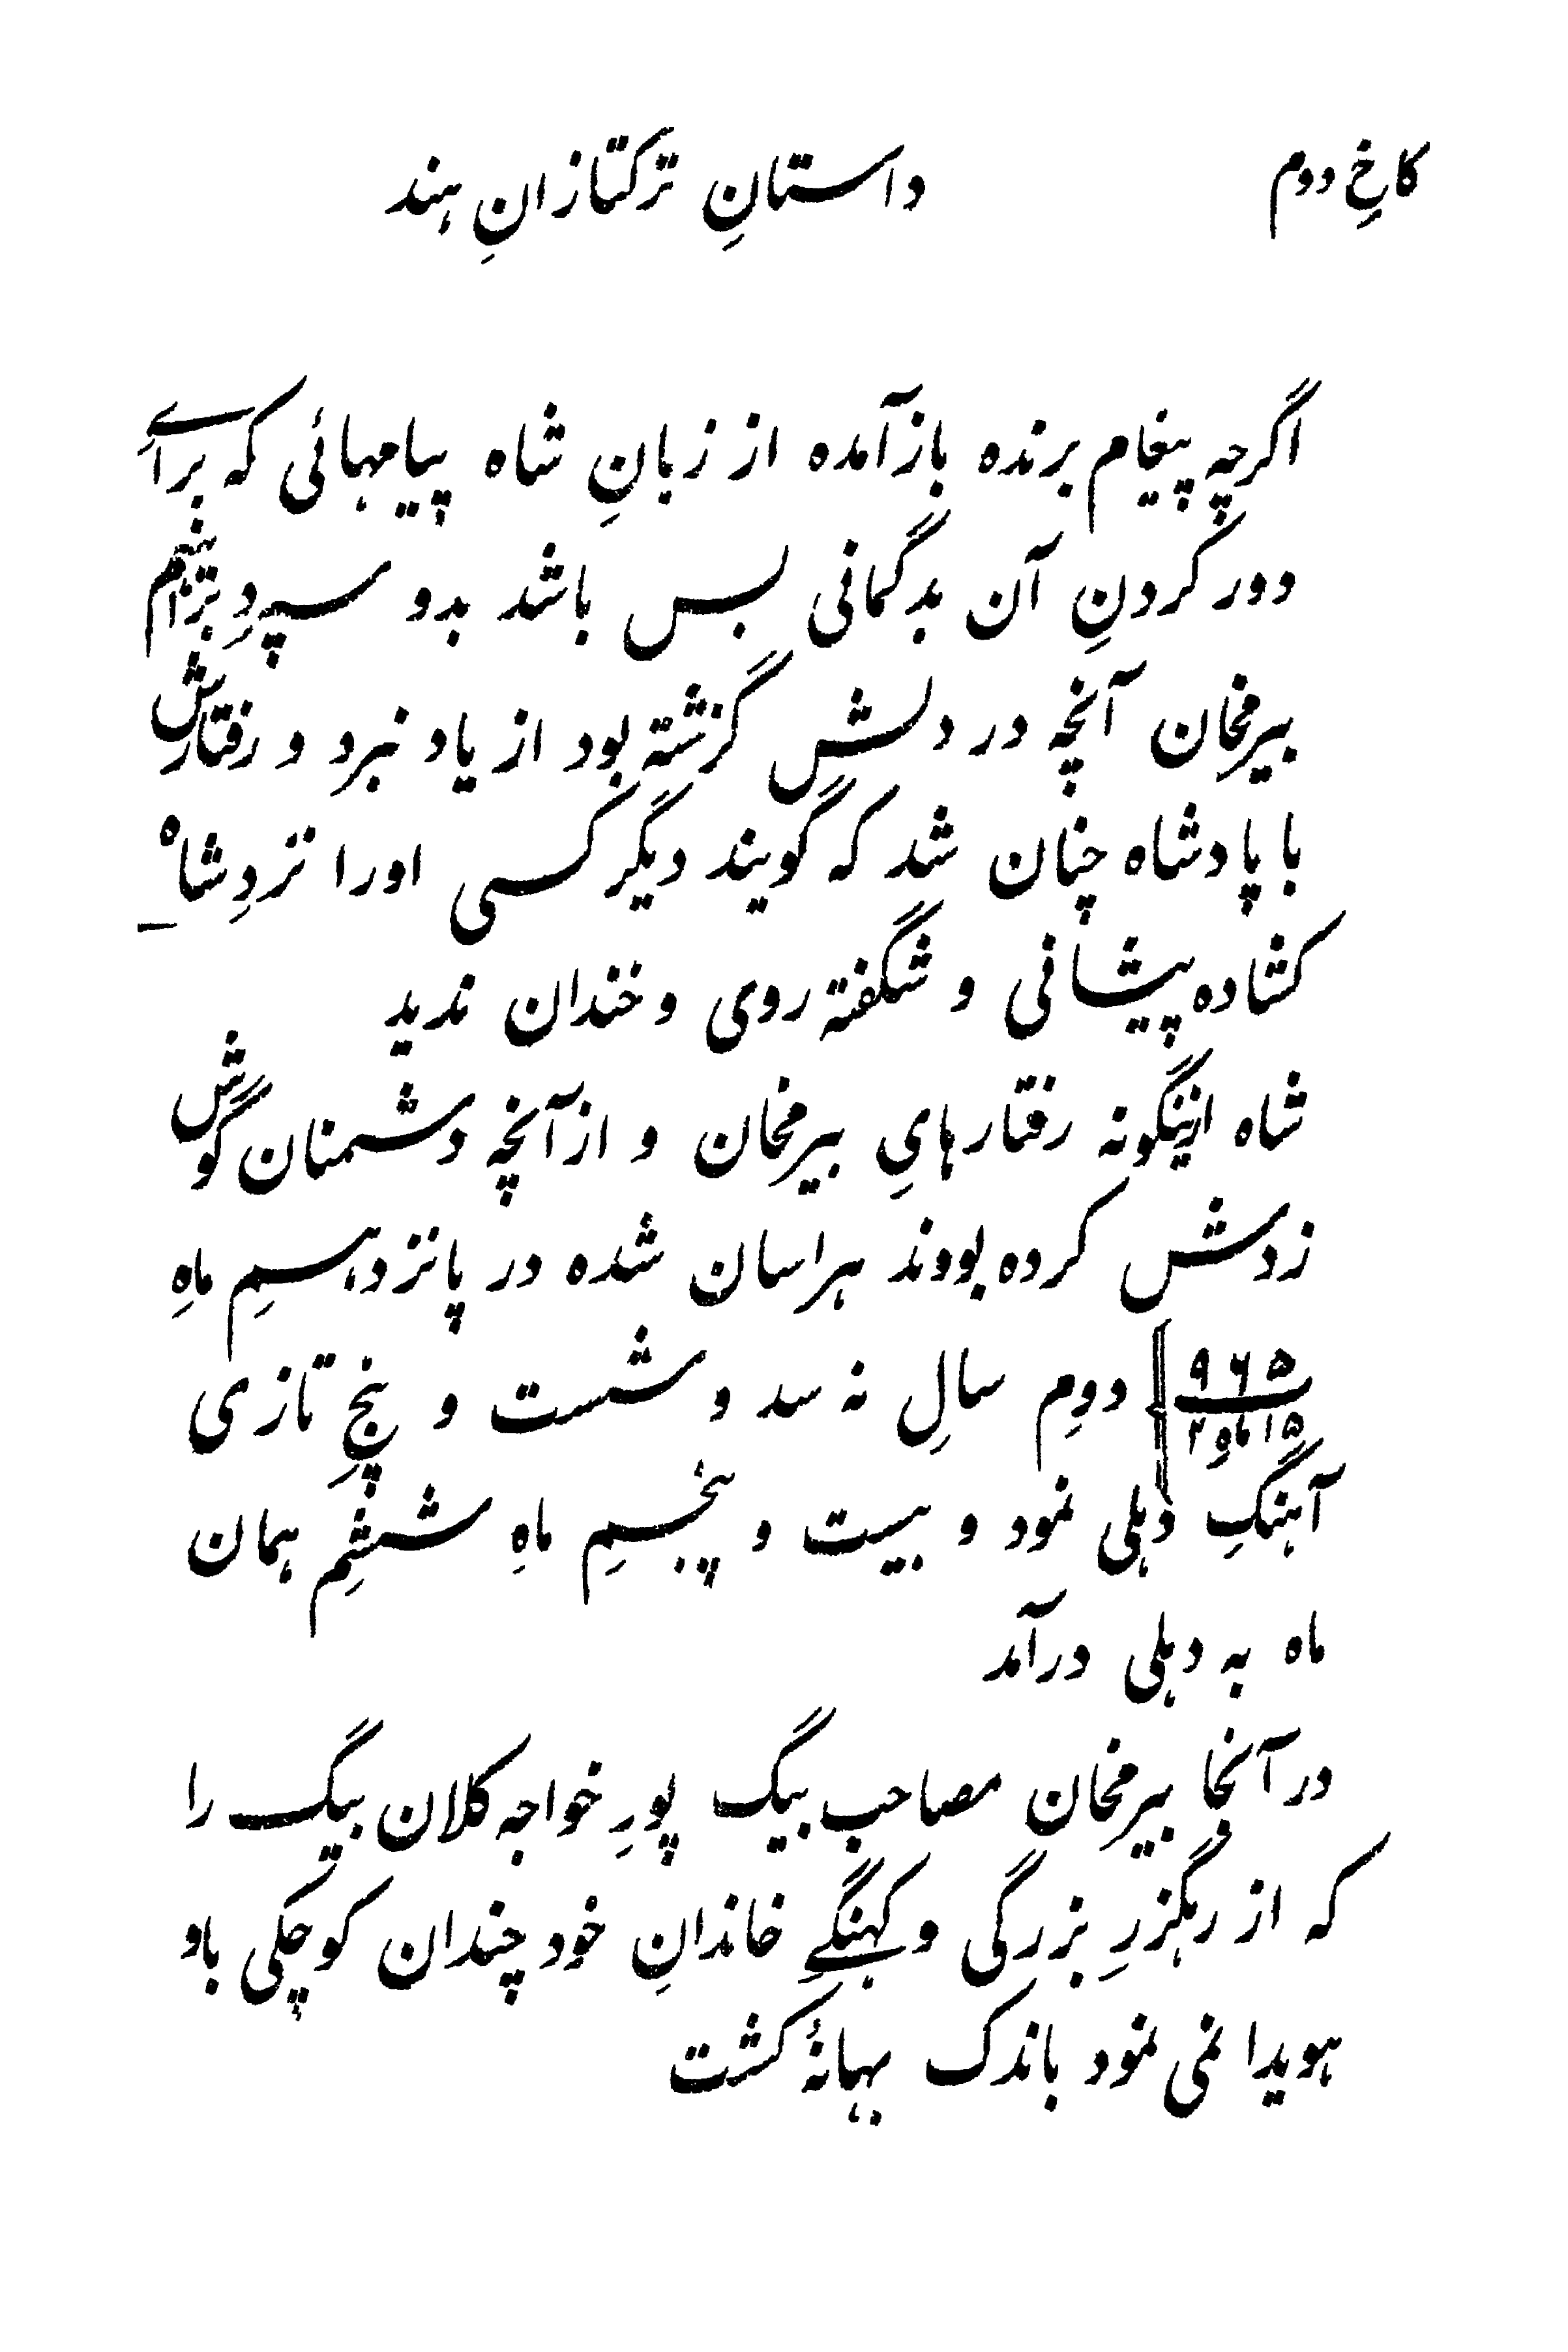 کاخِ دوم داستانِ ترکتازانِ هند
اگرچه پیغام برنده بازآمده از زبانِ شاه پیامهائی که برایِ
دور کردنِ آن بدگمانی بس باشد بدو سپرد
بیرمخان آنچه در دلش گزشته بود از یاد نبرد و رفتارش
با پادشاه چنان شد که گویند دیگر کسی اورا نزدِ شاه
کشاده پیشانی و شگفته روی و خندان ندید
شاه ازینگونه رفتارهایِ بیرمخان و از آنچه دشمنان گوش
زدش کرده بودند هراسان شده در پانزدهمِ ماهِ
۹۶۵ دومِ سالِ نه سد و شست و پنجِ تازی
۱۵ ماه ۲
آهنگِ دهلی نمود و بیست و پنجمِ ماهِ ششمِ همان
ماه به دهلی درآمد
در آنجا بیرمخان مصاحب بیگ پورِ خواجه کلان بیگ را
که از رهگزرِ بزرگی و کهنگیِ خاندانِ خود چندان کوچکی باو
هویدا نمی نمود باندک بهانهٔ کشت